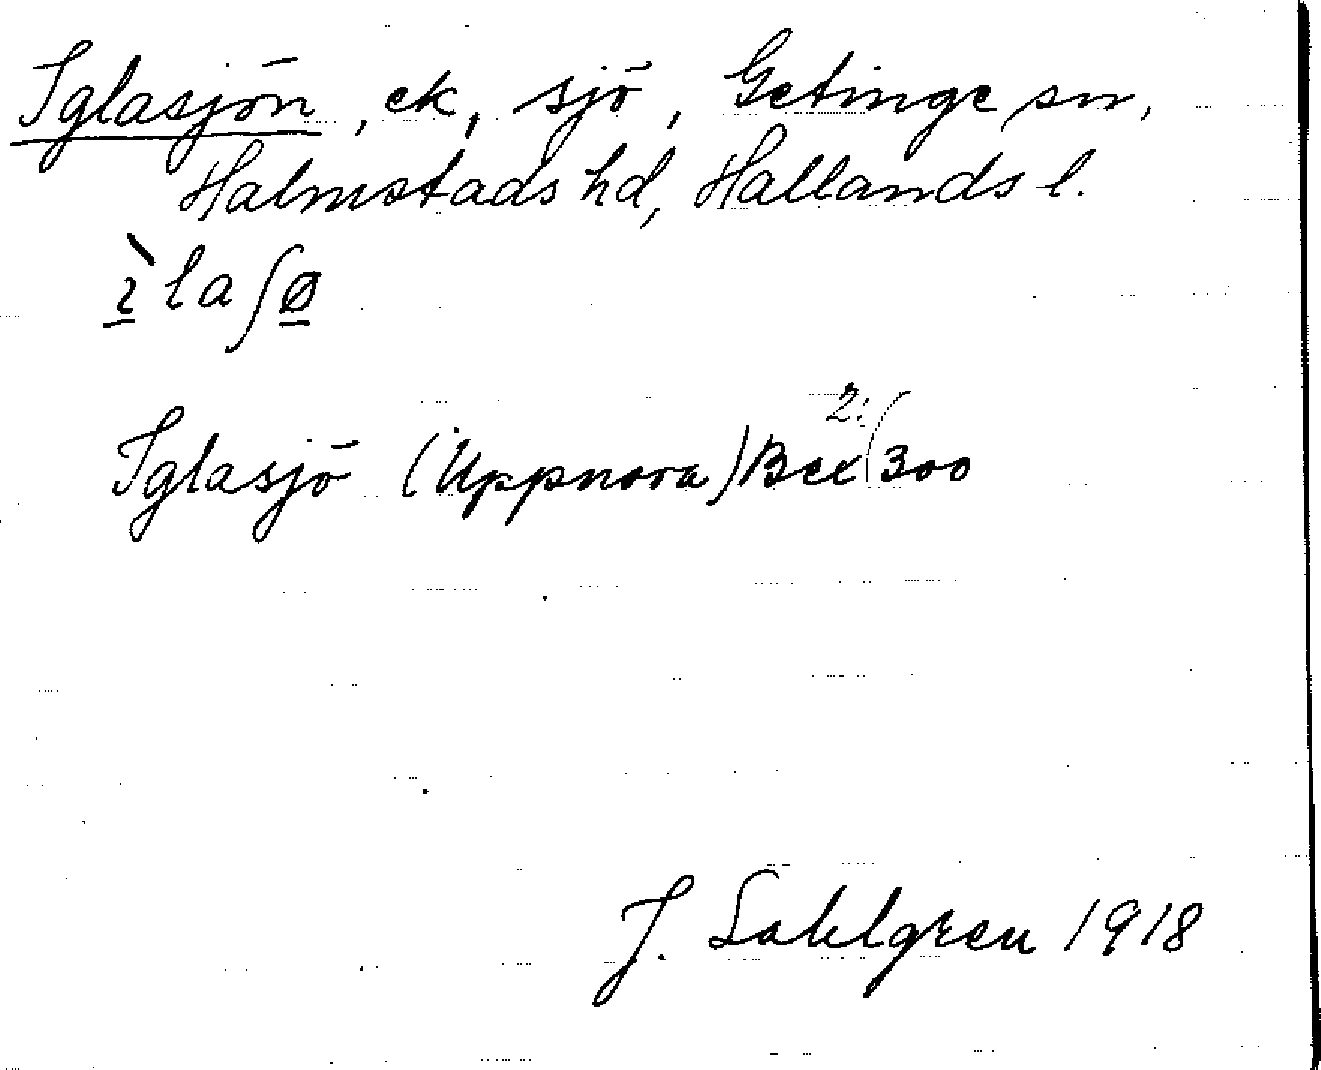 Iglasjön, ek, sjö, Getinge sn,
Halmstads hd, Hallands l.
ı̀laſø
Iglasjö (Uppnora) Bex 2:(300
J. Sahlgren 1918